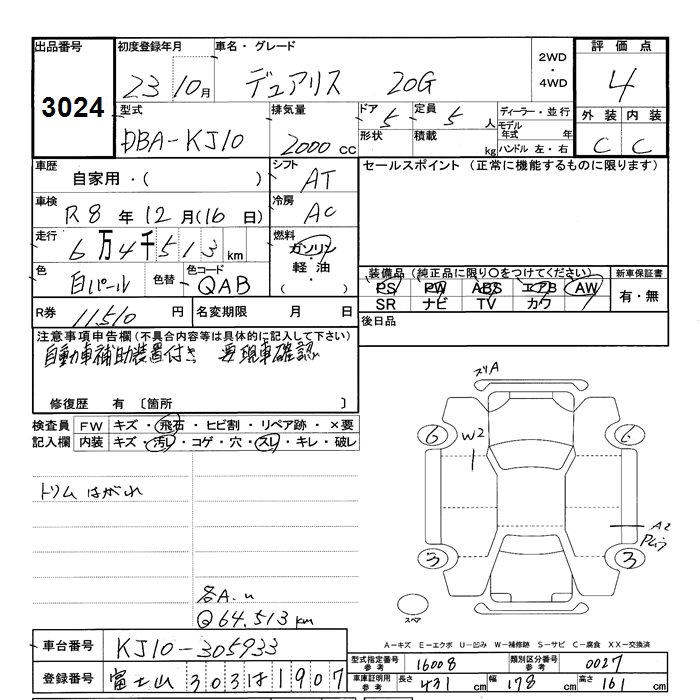 出品番号
3024
初度登録年月
23 10月
車名・グレード
デュアリス 20G
2WD
・
4WD
評価点
4
外装 内装
C C
型式
DBA-KJ10
排気量
2000cc
ドア 5
形状
定員 5人
積載 kg
ディーラー・並行
モデル年式 年
ハンドル 左・右
車歴
自家用・( )
シフト
AT
セールスポイント (正常に機能するものに限ります)
車検
R8年12月(16日)
冷房
AC
走行
6万4千513km
燃料
ガソリン
軽油
( )
色
白パール
色替
色コード
QAB
装備品(純正品に限り○をつけてください)
PS PW ABS エアB AW
SR ナビ TV カワ
新車保証書
有・無
R券 11510円
名変期限 月 日
後日品
注意事項申告欄(不具合内容等は具体的に記入して下さい)
自動車補助装置付き 要現車確認
修復歴 有 〔箇所 〕
検査員記入欄
FW キズ・飛石・ヒビ割・リペア跡・×要
内装 キズ・汚レ・コゲ・穴・スレ・キレ・破レ
トリムはがれ
各A.u
Q64.513km
スリA
6 6
W2
A2
3 3
スペア
A-キズ E-エクボ U-凹み W-補修跡 S-サビ C-腐食 XX-交換済
車台番号 KJ10-305933
型式指定番号 参考 16008
類別区分番号 参考 0027
登録番号 富士山 303 は 1907
車庫証明用 参考 長さ 431cm 幅 178cm 高さ 161cm